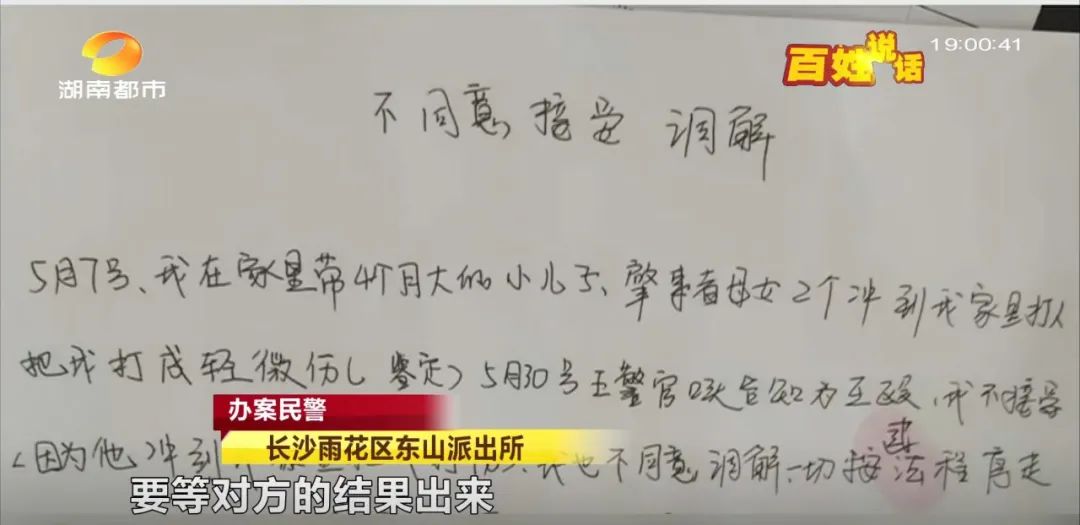 湖南都市
百姓说话
19:00:41
不同意接受调解
5月7号、我在家里带4个月大的小儿子、肇事者母女2个冲到我家里打人
把我打成轻微伤(鉴定)5月30号王警官 告知为互殴、我不接受
(因为他冲到 我也不同意调解、一切按法程序走
办案民警
长沙雨花区东山派出所
要等对方的结果出来